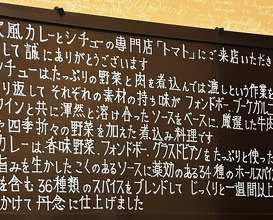 風カレーとシチューの専門店「トマト」にご来店いただき
して誠にありがとうございます
シチューはたっぷりの野菜と肉を煮込んでは漉しという作業を
り返して それぞれの素材の持ち味が フォンドボー、ブーケガルニ
ワインと共に渾然と溶け合ったソースをベースに、厳選した牛肉
や四季折々の野菜を加えた煮込み料理です
カレーは、香味野菜、フォンドボー、グラスドビアンをたっぷりと使った
旨みを生かしたこくのあるソースに薬効のある34種のホールスパイ
を含む 36種類のスパイスをブレンドして じっくりと一週間以上
かけて 丹念に仕上げました